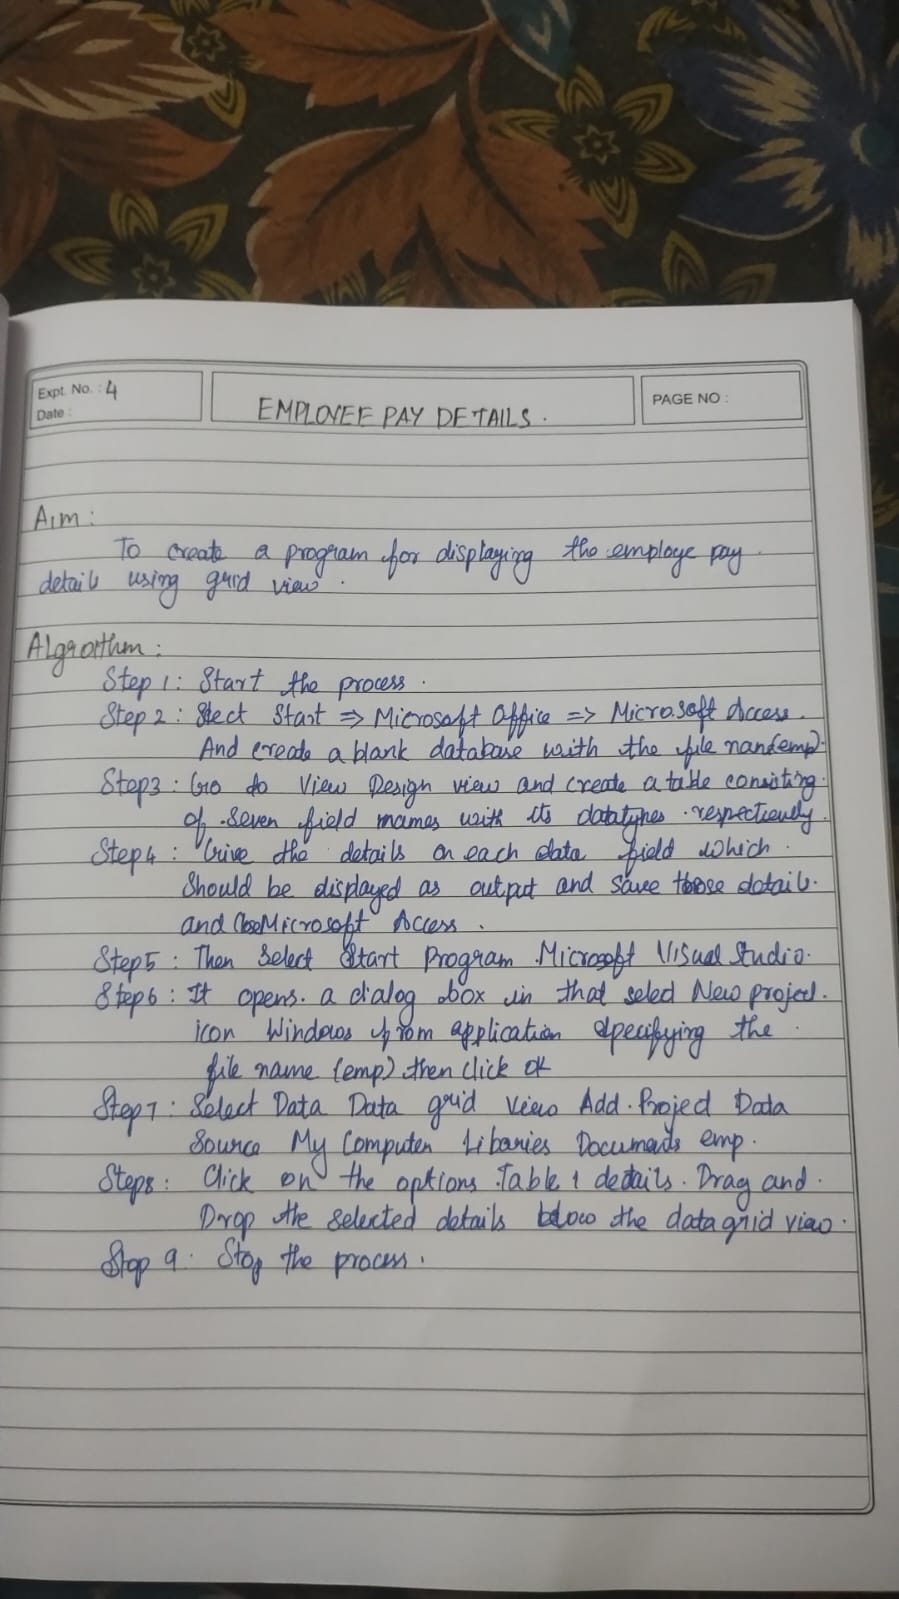 Expt. No. : 4
Date :
EMPLOYEE PAY DETAILS.
PAGE NO :
Aim:
To create a program for displaying the employe pay
detail using grid view.
Algorithm:
Step 1: Start the process.
Step 2: Select Start => Microsoft Office => Microsoft Access.
And create a blank database with the file name(emp).
Step3: Go to View Design view and create a table consisting
of seven field names with its datatypes respectively.
Step4: Give the details on each data field which
should be displayed as output and save those details.
and Close Microsoft Access.
Step5: Then Select Start Program Microsoft Visual Studio.
Step6: It opens. a dialog box in that select New project.
icon Windows from application specifying the
file name (emp) then click ok
Step7: Select Data Data grid view Add. Project Data
Source My Computer Libaries Documents emp.
Step8: Click on the options Table 1 details. Drag and.
Drop the selected details below the datagrid view.
Step 9: Stop the process.